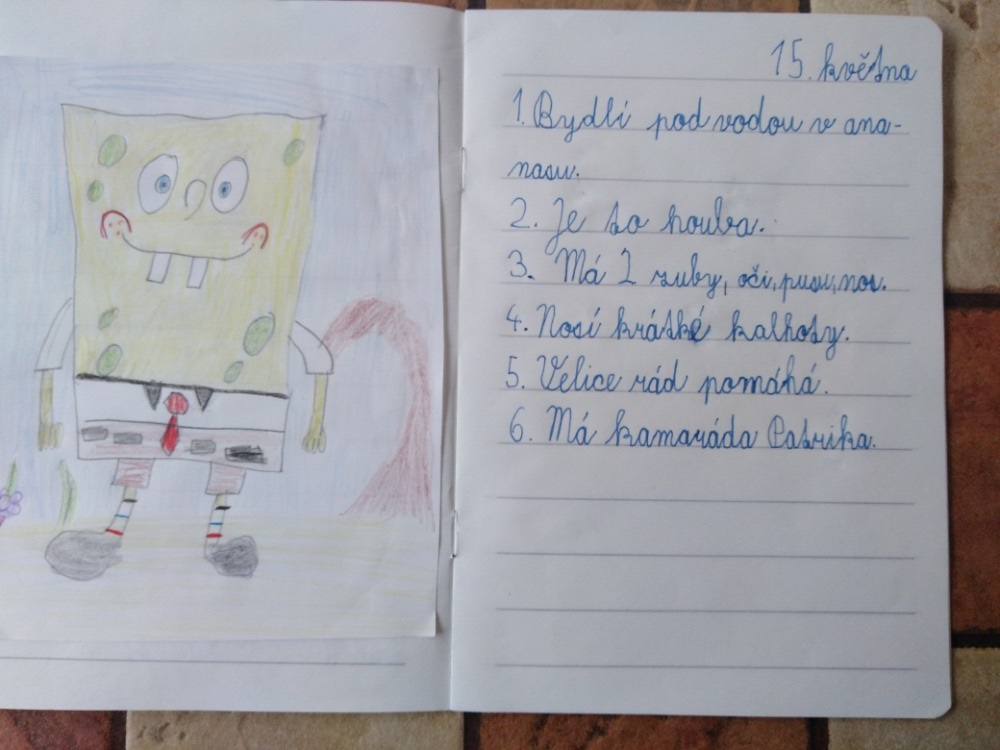 15. května
1. Bydlí pod vodou v ana-
nasu.
2. Je to houba.
3. Má 2 zuby, oči, pusu, nos.
4. Nosí krátké kalhoty.
5. Velice rád pomáhá.
6. Má kamaráda Patrika.